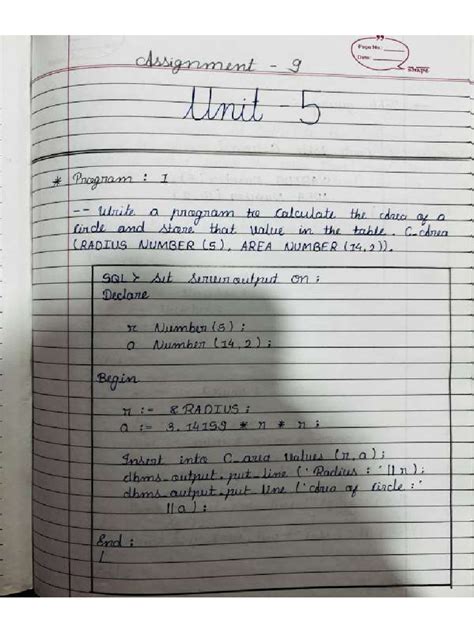 Page No.:
Date:
Assignment - 9
Unit - 5
* Program : 1
-- Write a program to calculate the area of a
Circle and store that value in the table. C-area
(RADIUS NUMBER (5), AREA NUMBER (14,2)).
SQL > Set Serveroutput ON ;
Declare
r Number (5) ;
a Number (14,2) ;
Begin
r := & RADIUS ;
a := 3.14159 * r * r ;
Insert into C_area values (r,a) ;
dbms_output.put_line ('Radius : ' || r) ;
dbms_output.put line ('Area of Circle : '
|| a) ;
End ;
/